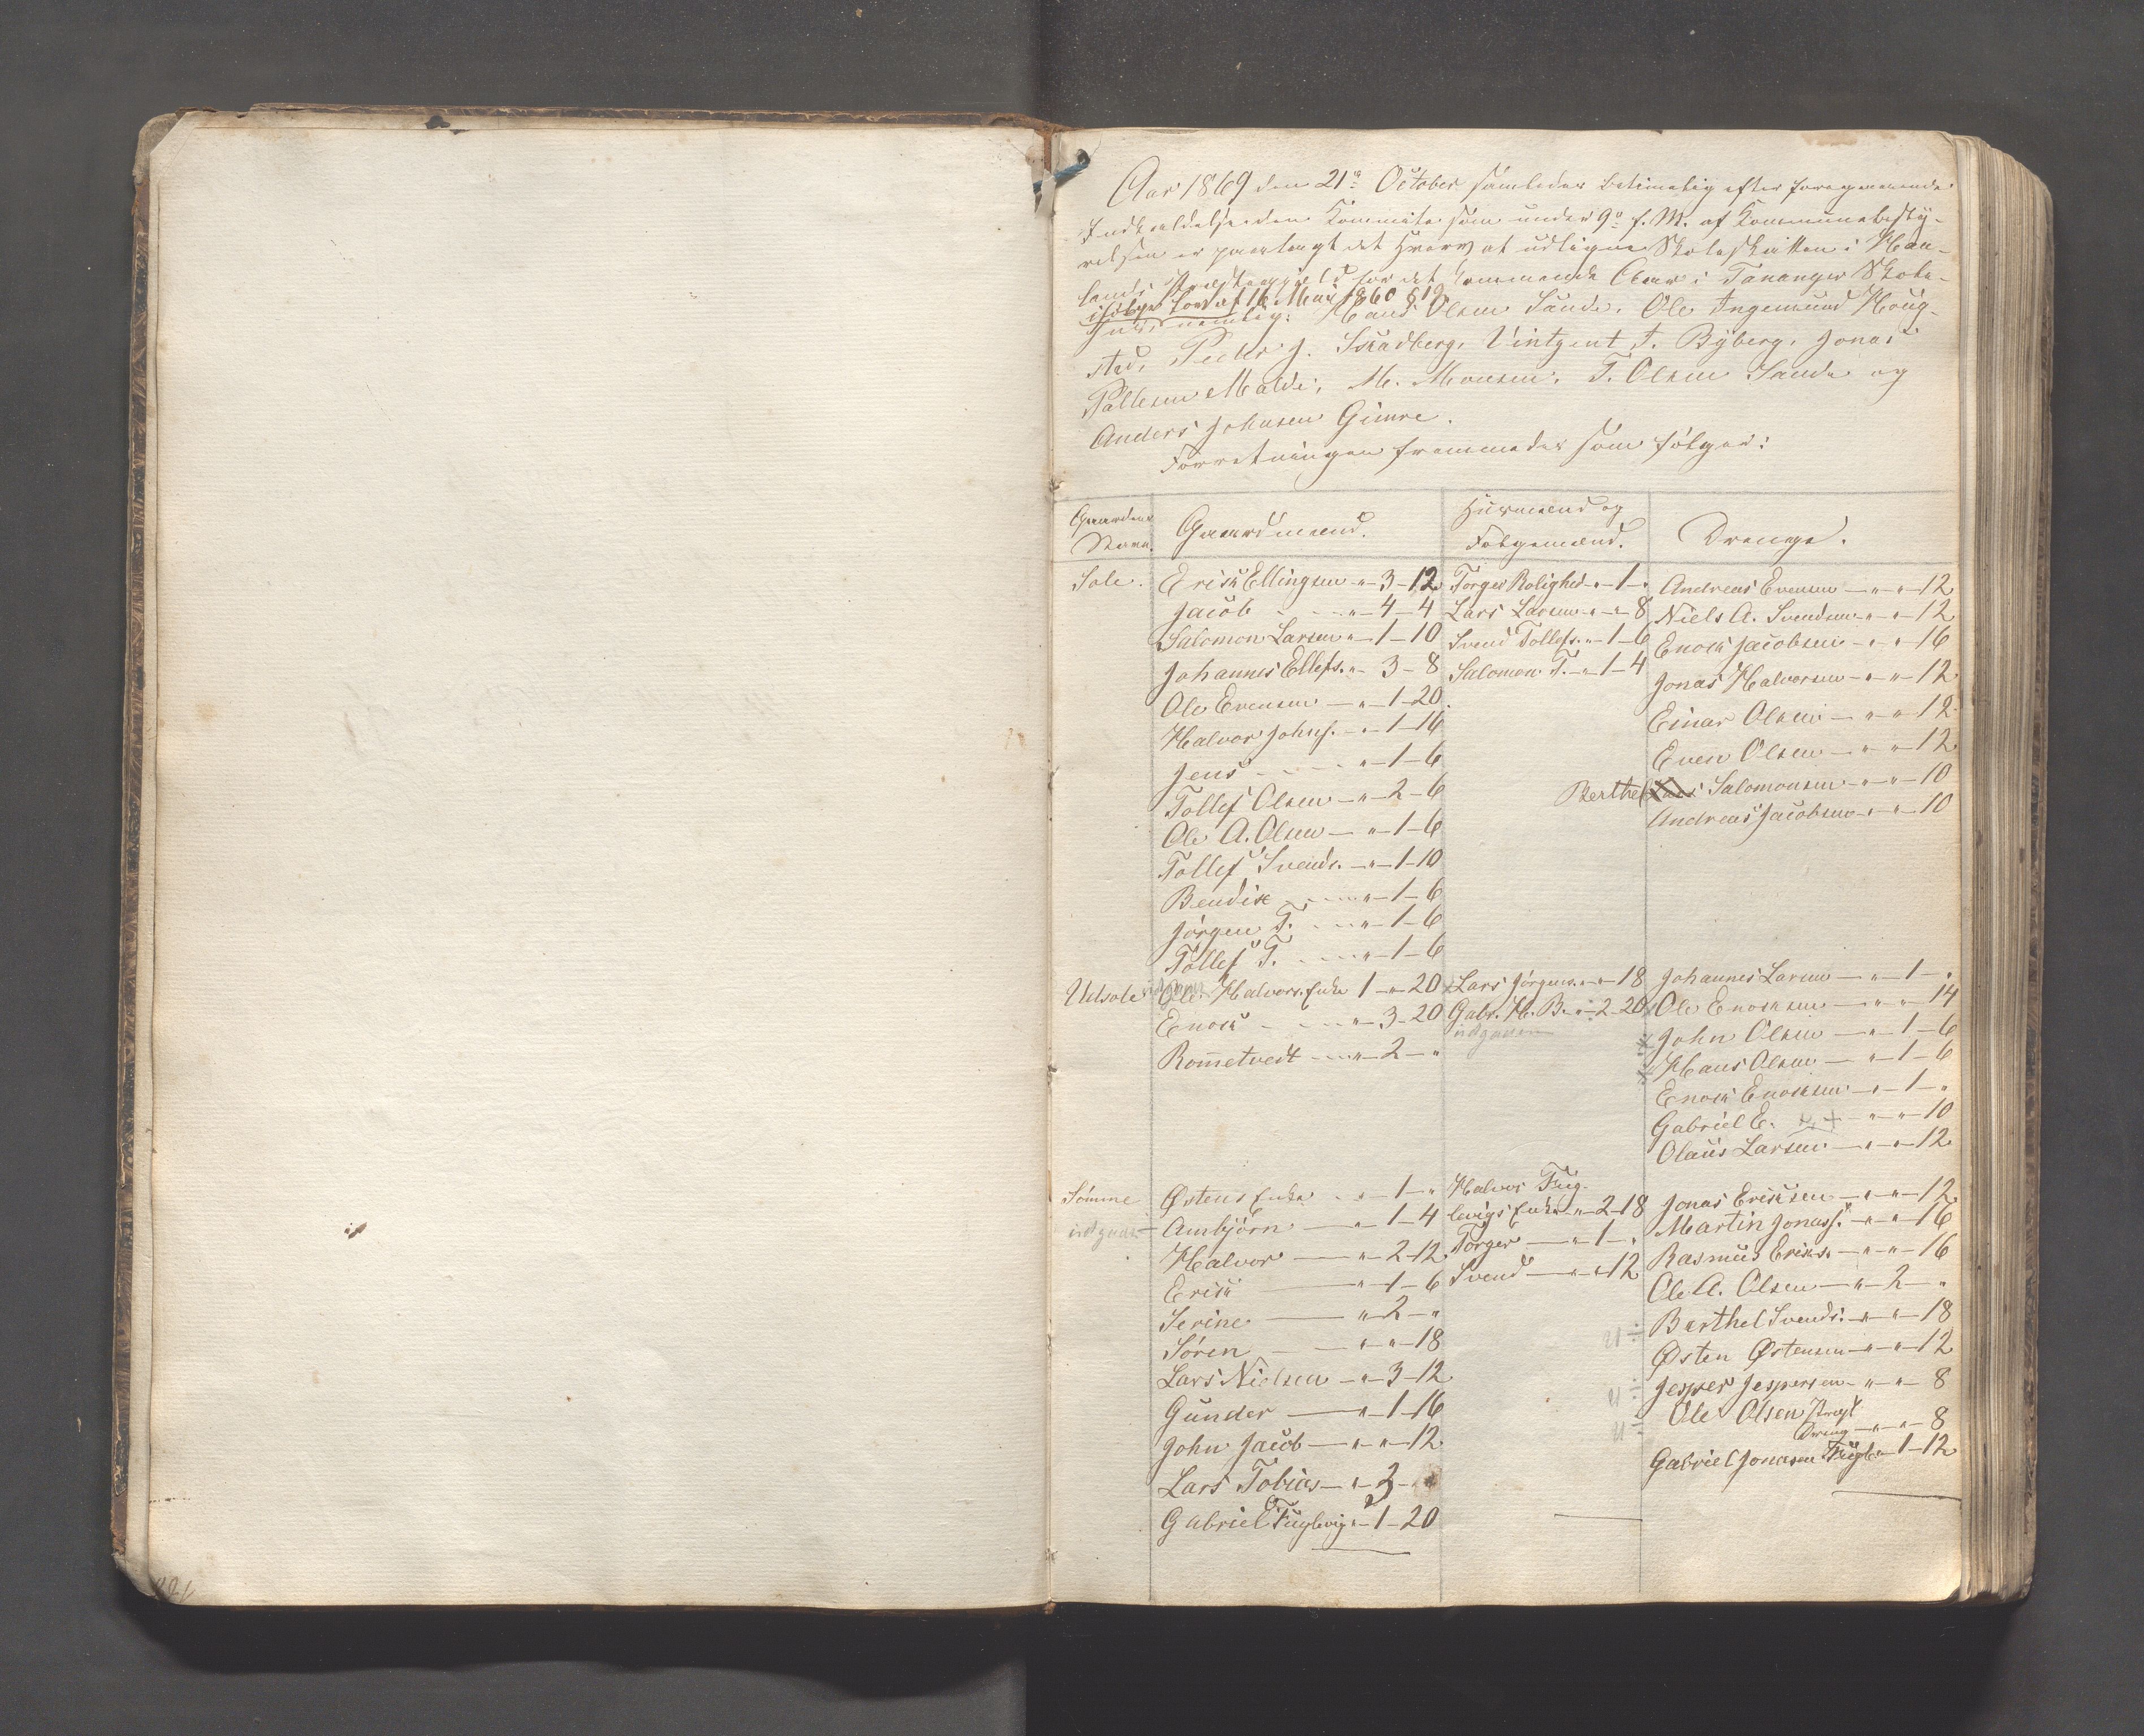 Aar 1869 den 21de October samledes betimelig efter foregaaende
Indkaldelse den Kommite som under 9de f. M. af Kommunebesty-
relsen er paalagt det Hverv at udligne Skoleskatten i Haa-
lands Præstegjeld for det kommende Aar i Tananger Skole-
ifølge Lov af 16 Mai 1860 § 19
nemlig: Hans Olsen Sande, Ole Ingemund Houg-
stad, Peder J. Skadberg, Vintzent T. Byberg, Jonas
Pallesen Malde, M. Monsen, T. Olsen Sande og
Anders Johnsen Gimre.
Forretningen fremmedes som følger:
Gaardens Navn. Gaardmænd. Huusmænd og Følgemænd. Drenge.
Sole. Erik Ellingsen - " - 3 - 12
Jacob - " - 4 - 4
Salomon Larsen " - 1 - 10
Johannes Ellefs. " - 3 - 8
Ole Evensen - " - 1 - 20
Halvor Johns. - " - 1 - 16
Jens - " - 1 - 6
Tollef Olsen - " - 2 - 6
Ole A. Olsen - " - 1 - 6
Tollef Svends. - " - 1 - 10
Bendix - " - 1 - 6
Jørgen T. - " - 1 - 6
Tollef T. - " - 1 - 6
Torger Rolighed - " - 1 - "
Lars Larsen - " - " - 8
Svend Tollefs. " - 1 - 6
Salomon T. - " - 1 - 4
Andreas Evensen - " - " - 12
Niels A. Svendsen - " - " - 12
Enok Jacobsen - " - " - 16
Jonas Halvorsen - " - " - 12
Einar Olsen - " - " - 12
Even Olsen - " - " - 12
Berthel Salomonsen - " - " - 10
Andreas Jacobsen - " - " - 10
Udsole Ole Halvors. Enke 1 - " - 20
Enok - " - 3 - 20
Rometvedt - " - 2 - "
Lars Jørgens. - " - " - 18
Gabr. H. B. - " - 2 - 20
udgaaer
Johannes Larsen - " - 1 - "
Ole Enoksen - " - " - 14
John Olsen - " - 1 - 6
Hans Olsen - " - 1 - 6
Enok Enoksen - " - 1 - "
Gabriel E. - " - " - 10
Olaus Larsen - " - " - 12
Sømme Østens Enke - " - 1 - "
udgaaer Ambjørn - " - 1 - 4
Halvor - " - 2 - 12
Erik - " - 1 - 6
Serine - " - 2 - "
Søren - " - " - 18
Lars Nielsen - " - 3 - 12
Gunder - " - 1 - 16
John Jacob - " - " - 12
Lars Tobias - " - 3 - "
Gabriel Fuglevig " - 1 - 20
Halvor Fug-
levigs Enke " - 2 - 18
Torger - " - 1 - "
Svend - " - " - 12
Jonas Eriksen - " - " - 12
Martin Jonass. - " - " - 16
Rasmus Eriks. - " - " - 16
Ole A. Olsen - " - 2 - "
U ÷ Barthel Svends. - " - " - 18
Østen Østensen - " - " - 12
U ÷ Jesper Jespersen - " - " - 8
U ÷ Ole Olsen
Dreng - " - " - 8
Gabriel Jonasen Fugle. " - 1 - 12